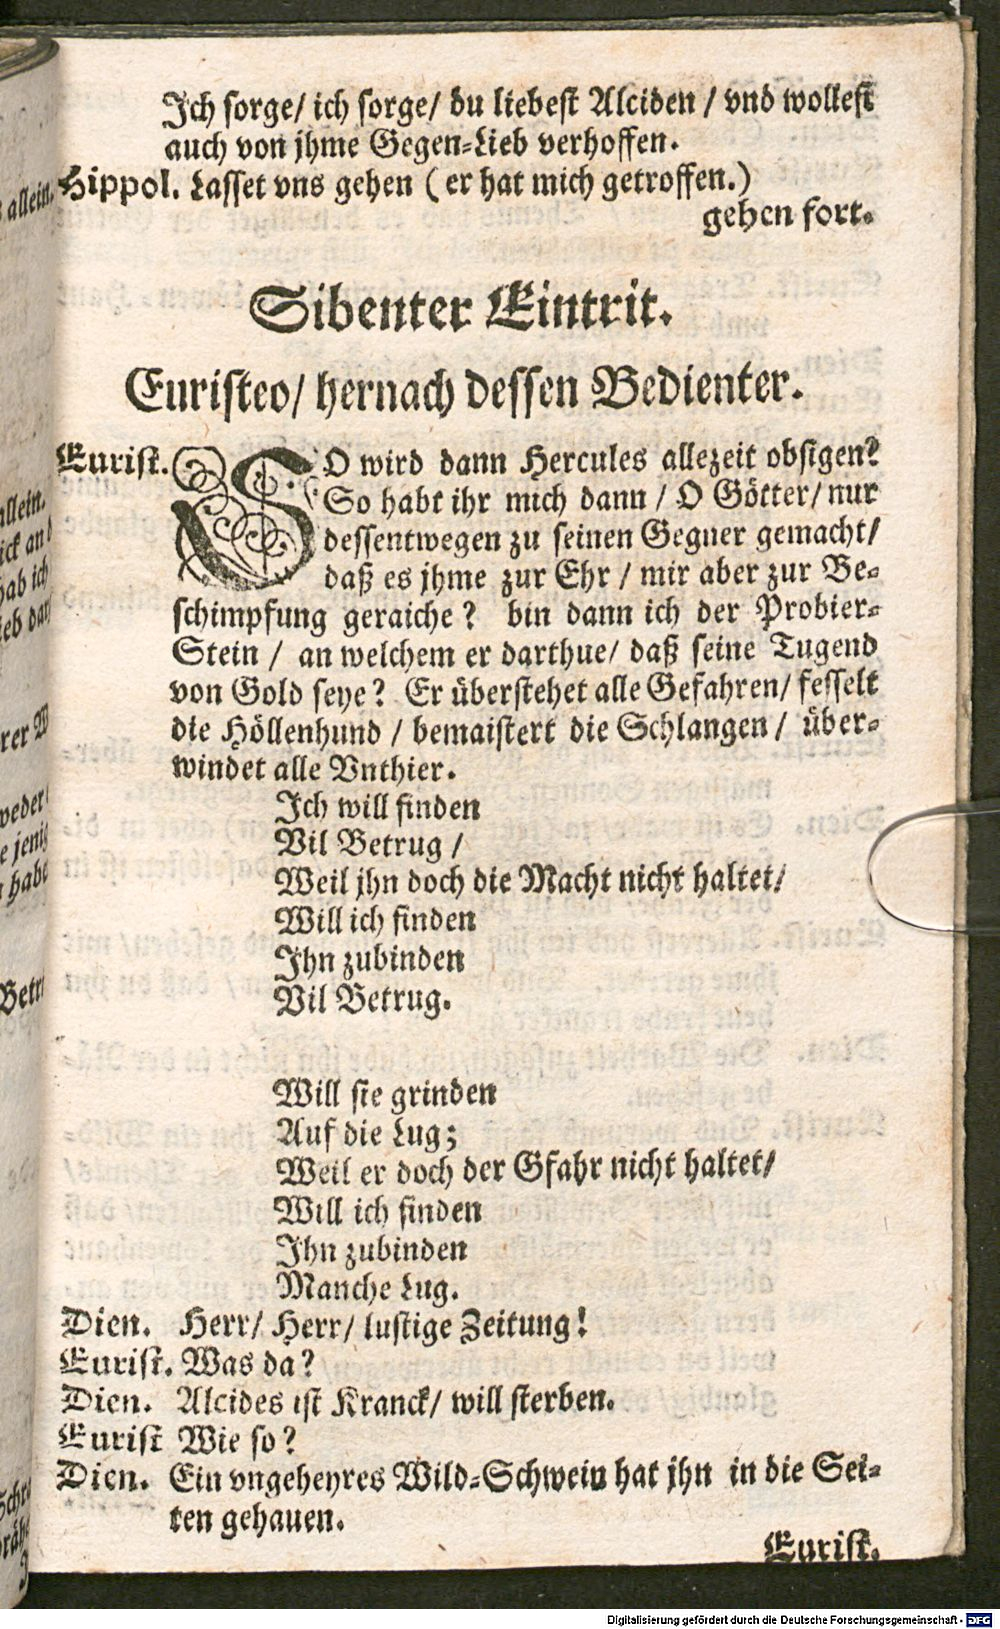 Ich sorge/ ich sorge/ du liebest Alciden / vnd wollest
auch von jhme Gegen-Lieb verhoffen.
Hippol. Lasset vns gehen ( er hat mich getroffen.)
gehen fort.
Sibenter Eintrit.
Euristeo/ hernach dessen Bedienter.
Eurist. SO wird dann Hercules allezeit obsigen?
So habt ihr mich dann / O Götter/ nur
dessentwegen zu seinen Gegner gemacht/
daß es jhme zur Ehr / mir aber zur Be-
schimpfung geraiche? bin dann ich der Probier-
Stein / an welchem er darthue/ daß seine Tugend
von Gold seye? Er überstehet alle Gefahren/ fesselt
die Höllenhund / bemaistert die Schlangen / über-
windet alle Vnthier.
Ich will finden
Vil Betrug /
Weil jhn doch die Macht nicht haltet/
Will ich finden
Ihn zubinden
Vil Betrug.
Will sie grinden
Auf die Lug;
Weil er doch der Gfahr nicht haltet/
Will ich finden
Ihn zubinden
Manche Lug.
Dien. Herr/ Herr/ lustige Zeitung!
Eurist. Was da?
Dien. Alcides ist Kranck/ will sterben.
Eurist Wie so?
Dien. Ein vngeheyres Wild-Schwein hat jhn in die Sei-
ten gehauen.
Eurist.
Digitalisierung gefördert durch die Deutsche Forschungsgemeinschaft - DFG